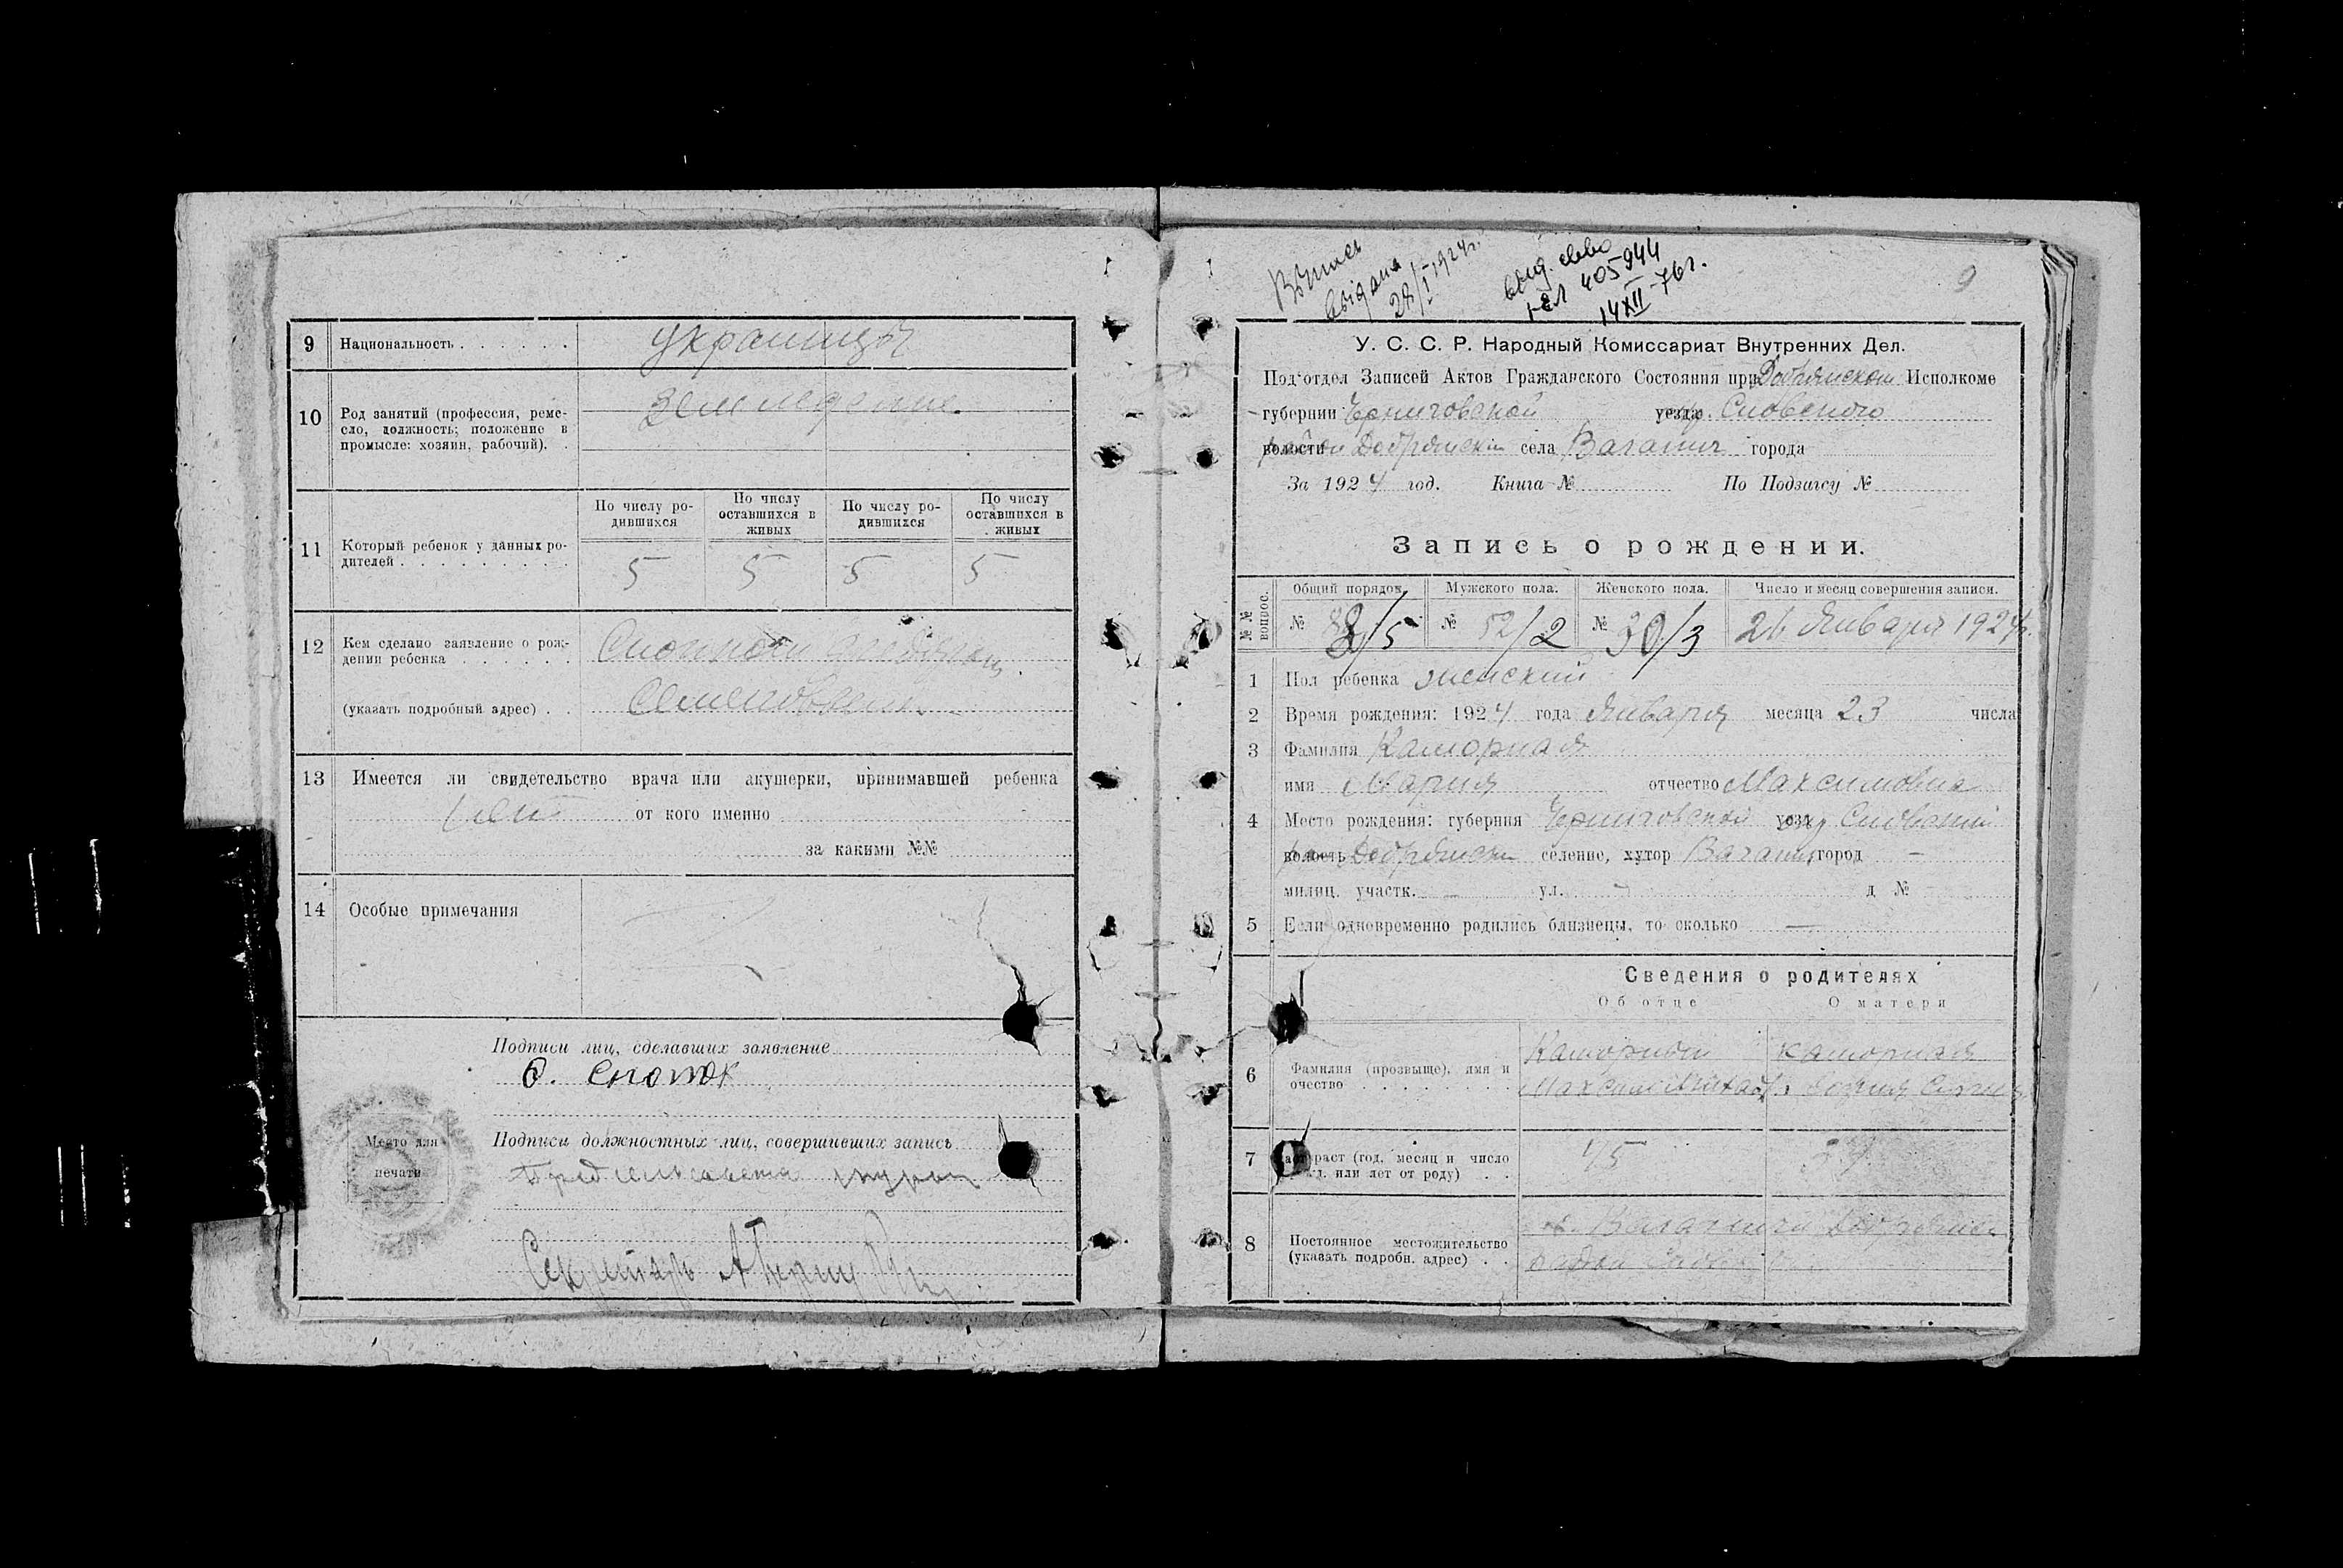 9 Национальность . . . . . . украинцы
10 Род занятий (профессия, реме-
сло, должность; положение в
промысле: хозяин, рабочий). .
земледелие
11 Который ребенок у данных ро-
дителей . . . . . . . . .
По числу ро-
дившихся
По числу
оставшихся в
живых
По числу ро-
дившихся
По числу
оставшихся в
живых
5 5 5 5
12 Кем сделано заявление о рож-
дении ребенка . . . . . .
(указать подробный адрес) . .
13 Имеется ли свидетельство врача или акушерки, принимавшей ребенка
нет от кого именно
за какими №№
14 Особые примечания
Подписи лиц, сделавших заявление
Место для
печати
Подписи должностных лиц, совершивших запись
Пред сельсовета
Секретарь
выдана
28/I 1924г.
405944
14 XII 76г.
9
У. С. С. Р. Народный Комиссариат Внутренних Дел.
Под'отдел Записей Актов Гражданского Состояния при Добрянском Исполкоме
губернии Черниговской уезда окр. Сновского
волости район Добрянский села Ваганич города
За 1924 год. Книга № По Подзагсу №
Запись о рождении.
№№ вопрос.
Общий порядок. Мужского пола. Женского пола. Число и месяц совершения записи.
№ 82/5 № 52/2 № 30/3 26 Января 1924г.
1 Пол ребенка женский
2 Время рождения: 1924 года Января месяца 23 числа
3 Фамилия Каморная
имя Мария отчество Максимовна
4 Место рождения: губерния Черниговской уезд окр Сновский
волость Добрянский селение, хутор Ваганич город —
милиц. участк. — ул. — д №
5 Если одновременно родились близнецы, то сколько —
Сведения о родителях
Об отце О матери
6 Фамилия (прозвище), имя и
очество . . . . . . . . .
Каморный Каморная
Максим
7 Возраст (год, месяц и число
рожд. или лет от роду) . .
45
8 Постоянное местожительство
(указать подробн. адрес) . .